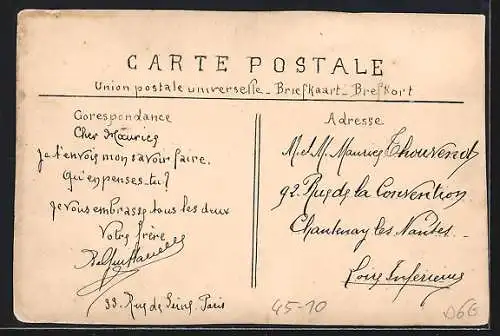 CARTE POSTALE
Union postale universelle _ Briefkaart _ Brefkort
Corespondance
Cher Maurice
Je t'envois mon savoir faire.
Qu'en penses-tu?
Je vous embrasse tous les deux
Votre frère
33. Rue de Seine. Paris
Adresse
M. et Me Maurice Thouvenot
92. Rue de la Convention
Chantenay les Nantes _
Loire Inférieure
45-10
D6G